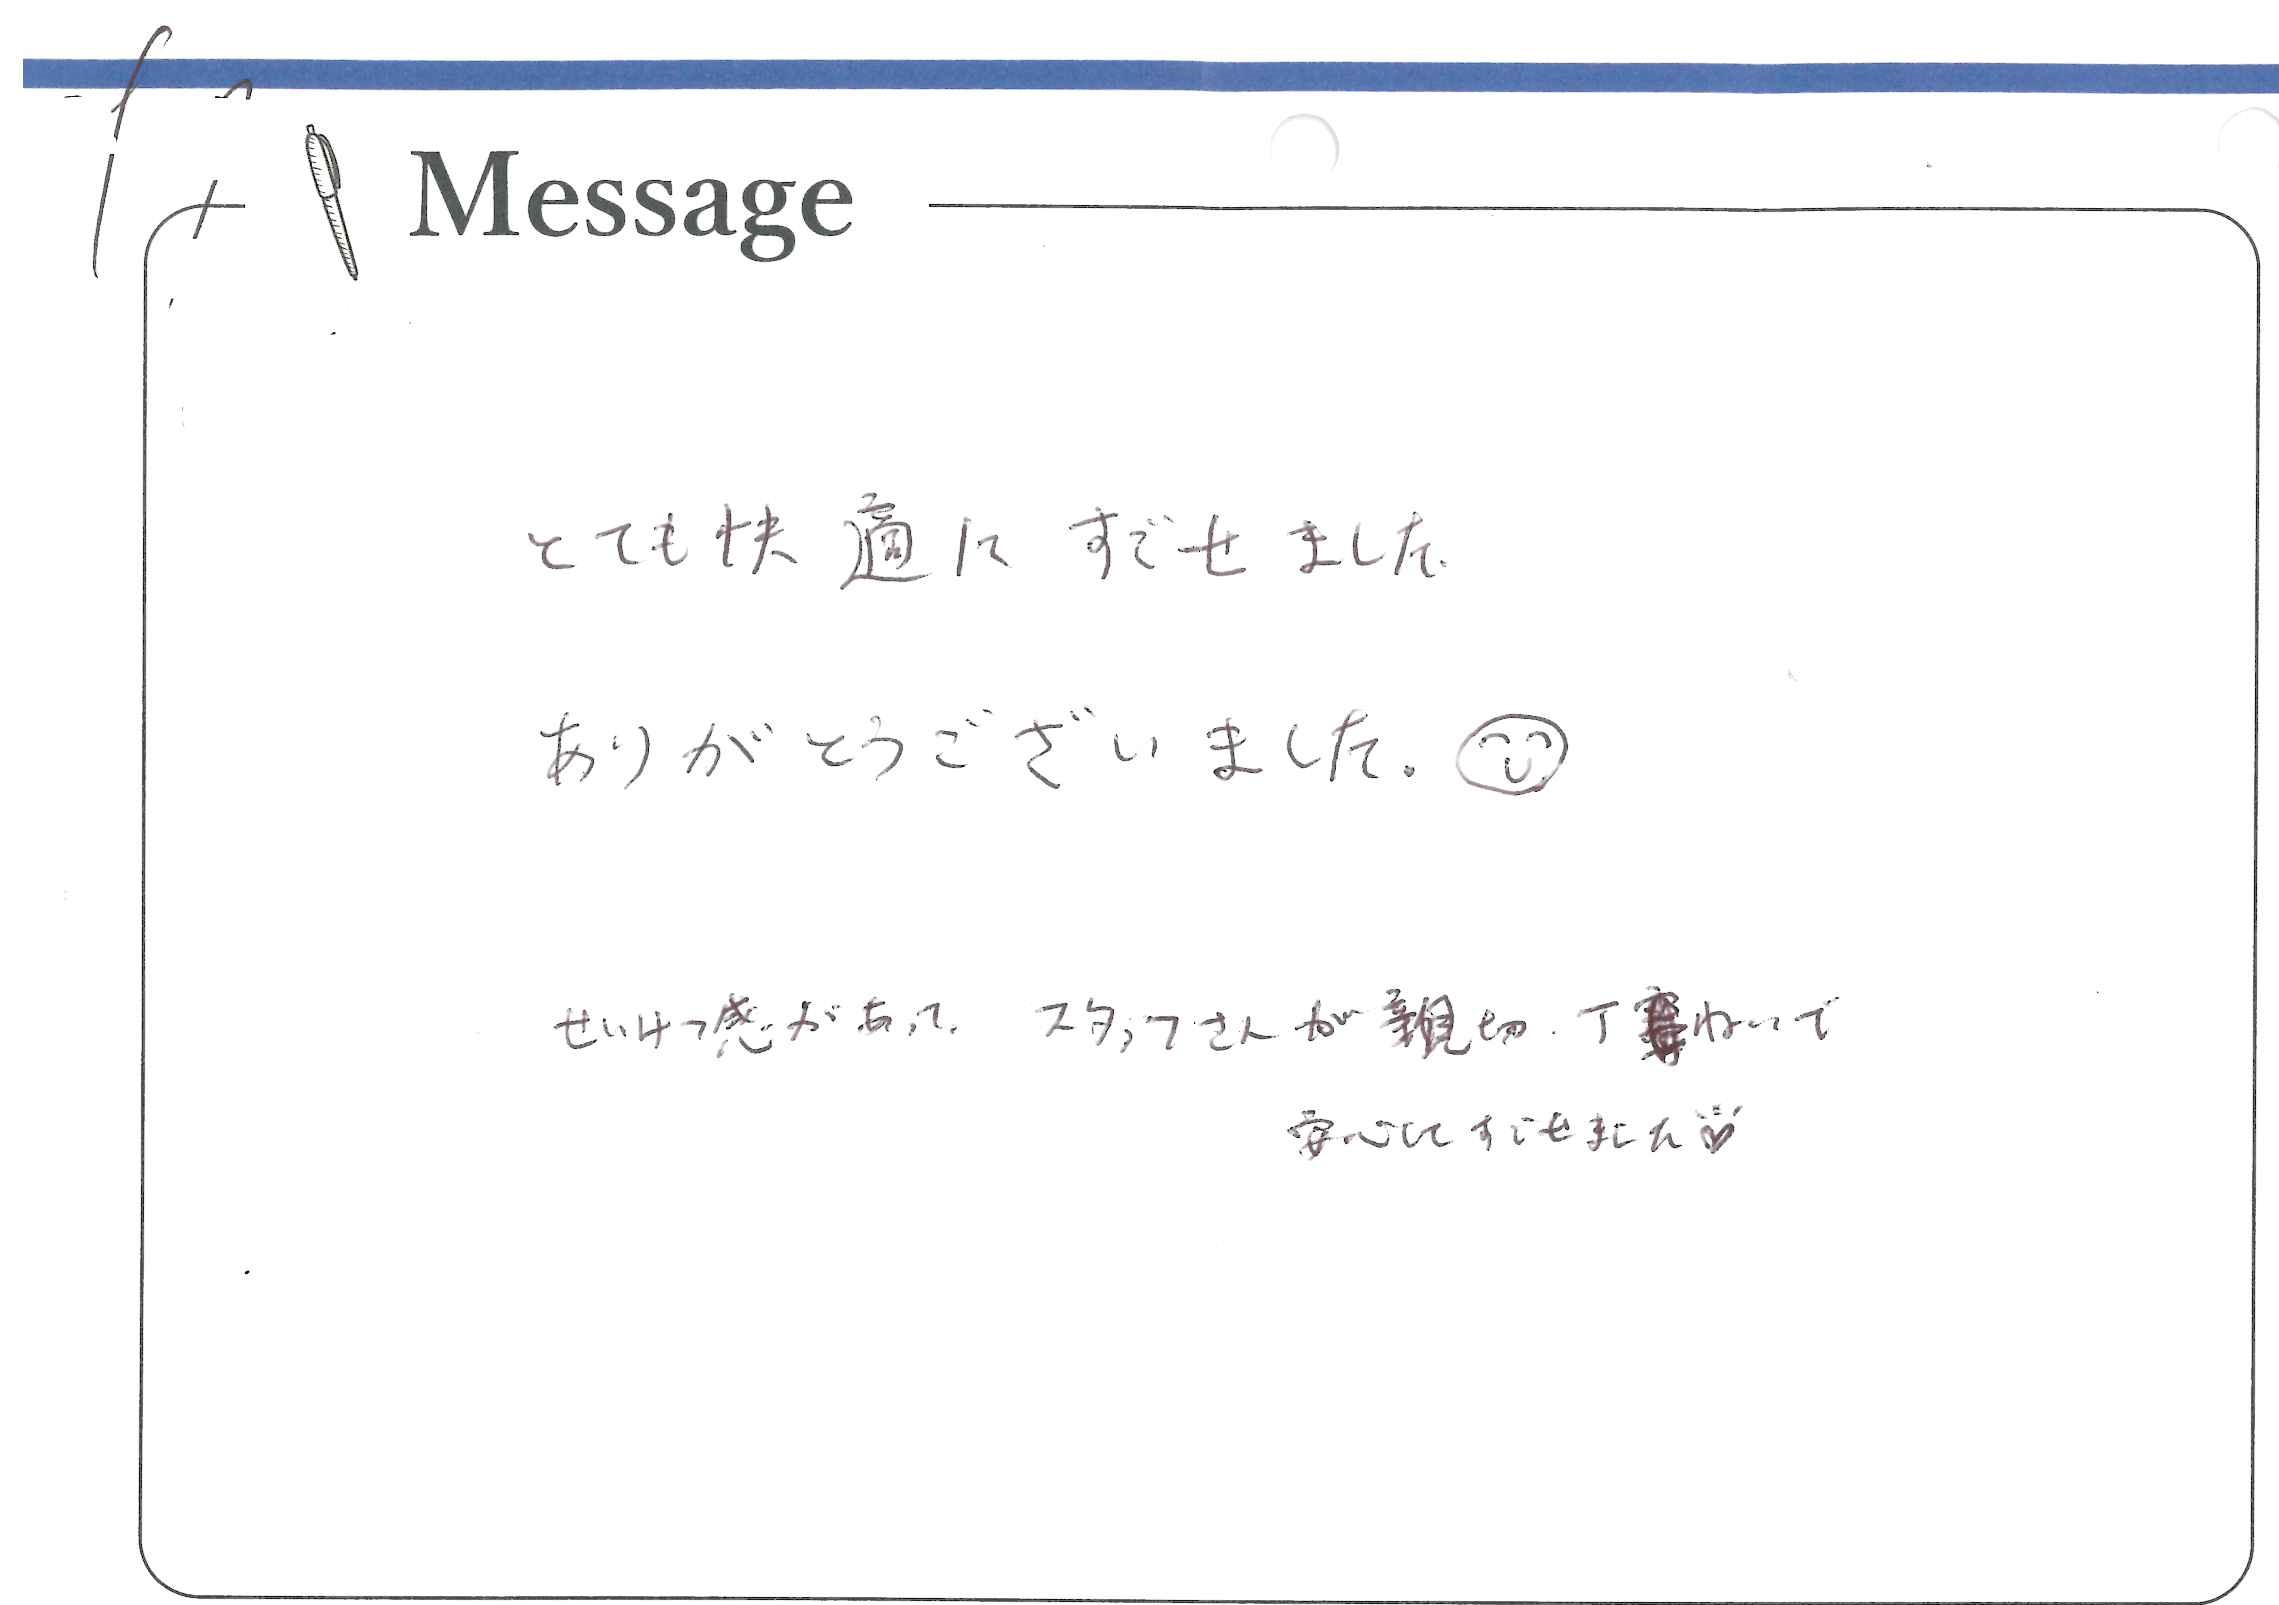 Message
とても快適に すごせました.
ありがとうございました。
せいけつ感があって、 スタッフさんが親切、丁ねいで
安心してすごせました♡